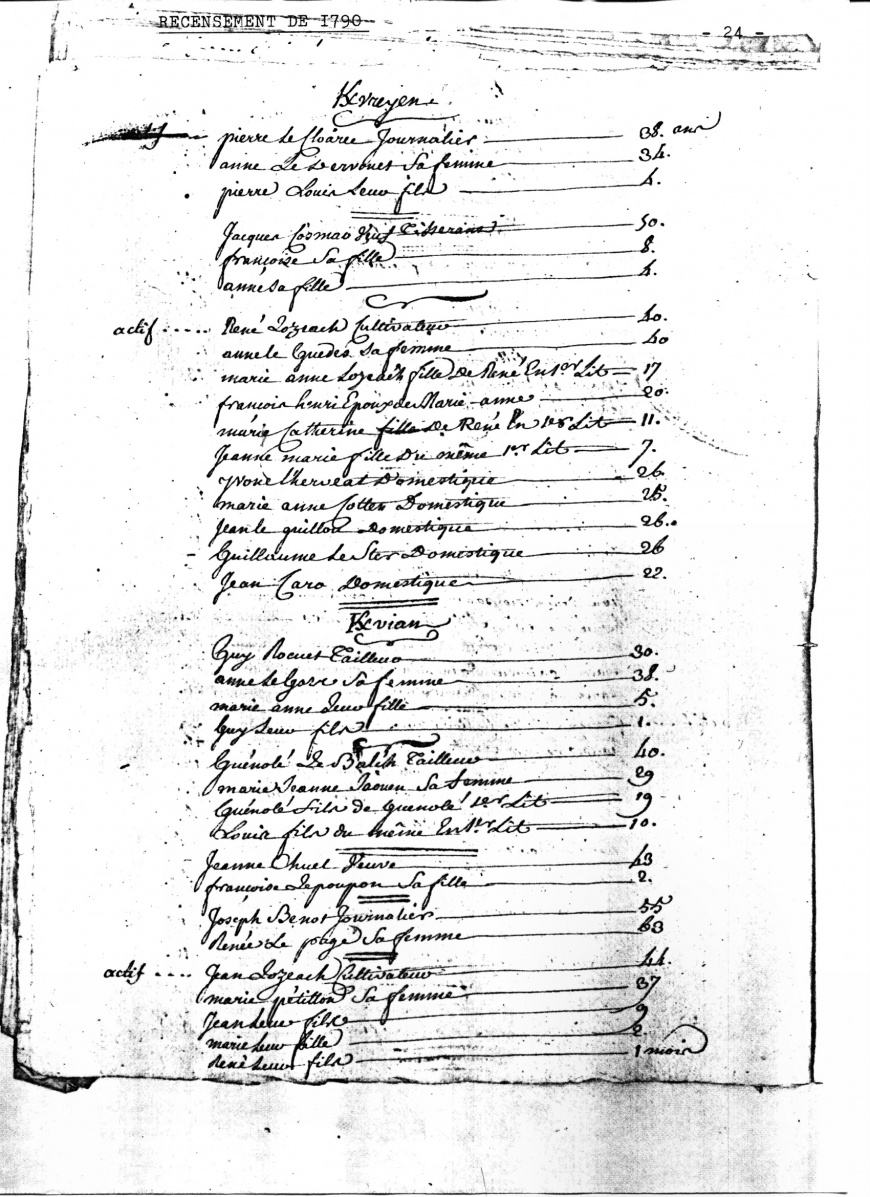 RECENSEMENT DE 1790
- 24 -
Kvreyen
pierre Le Cloarec Journalier 38. ans
anne Le Dervouet Sa femme 34.
pierre Louis Leur fils 4.
Jacques Cosmao Veuf Tisserant 50.
françoise Sa fille 8.
anne Sa fille 4.
actif ..... René Lozeach Cultivateur 40.
anne le Guedes Sa femme 40
marie anne Lozeach fille De René En 1er Lit 17
françois henri Epoux de Marie anne 20.
marie Catherine fille De René En 1er Lit 11.
Jeanne marie fille Du même 1er Lit 7.
yvone L'herveat Domestique 26
marie anne Cotten Domestique 25.
Jean le guillou Domestique 26.
Guillaume Le Ster Domestique 26
Jean Caro Domestique 22.
Kvian
Guy Rocuet Tailleur 30.
anne Le Gore Sa femme 38.
marie anne Leur fille 5.
Guy Leur fils 1.
Guénolé Le Balch Tailleur 40.
marie Jeanne Jaouen Sa femme 29
Guénolé fils de Guenolé 1er Lit 19
Louis fils du même En 1er Lit 10.
Jeanne Chuel Veuve 43
françoise Lepoupon Sa fille 2.
Joseph Benot Journalier 55
Renée Le page Sa femme 63
actif .... Jean Lozeach Cultivateur 44.
marie petillon Sa femme 37
Jean Leur fils 9
marie Leur fille 2
René Leur fils 1 mois